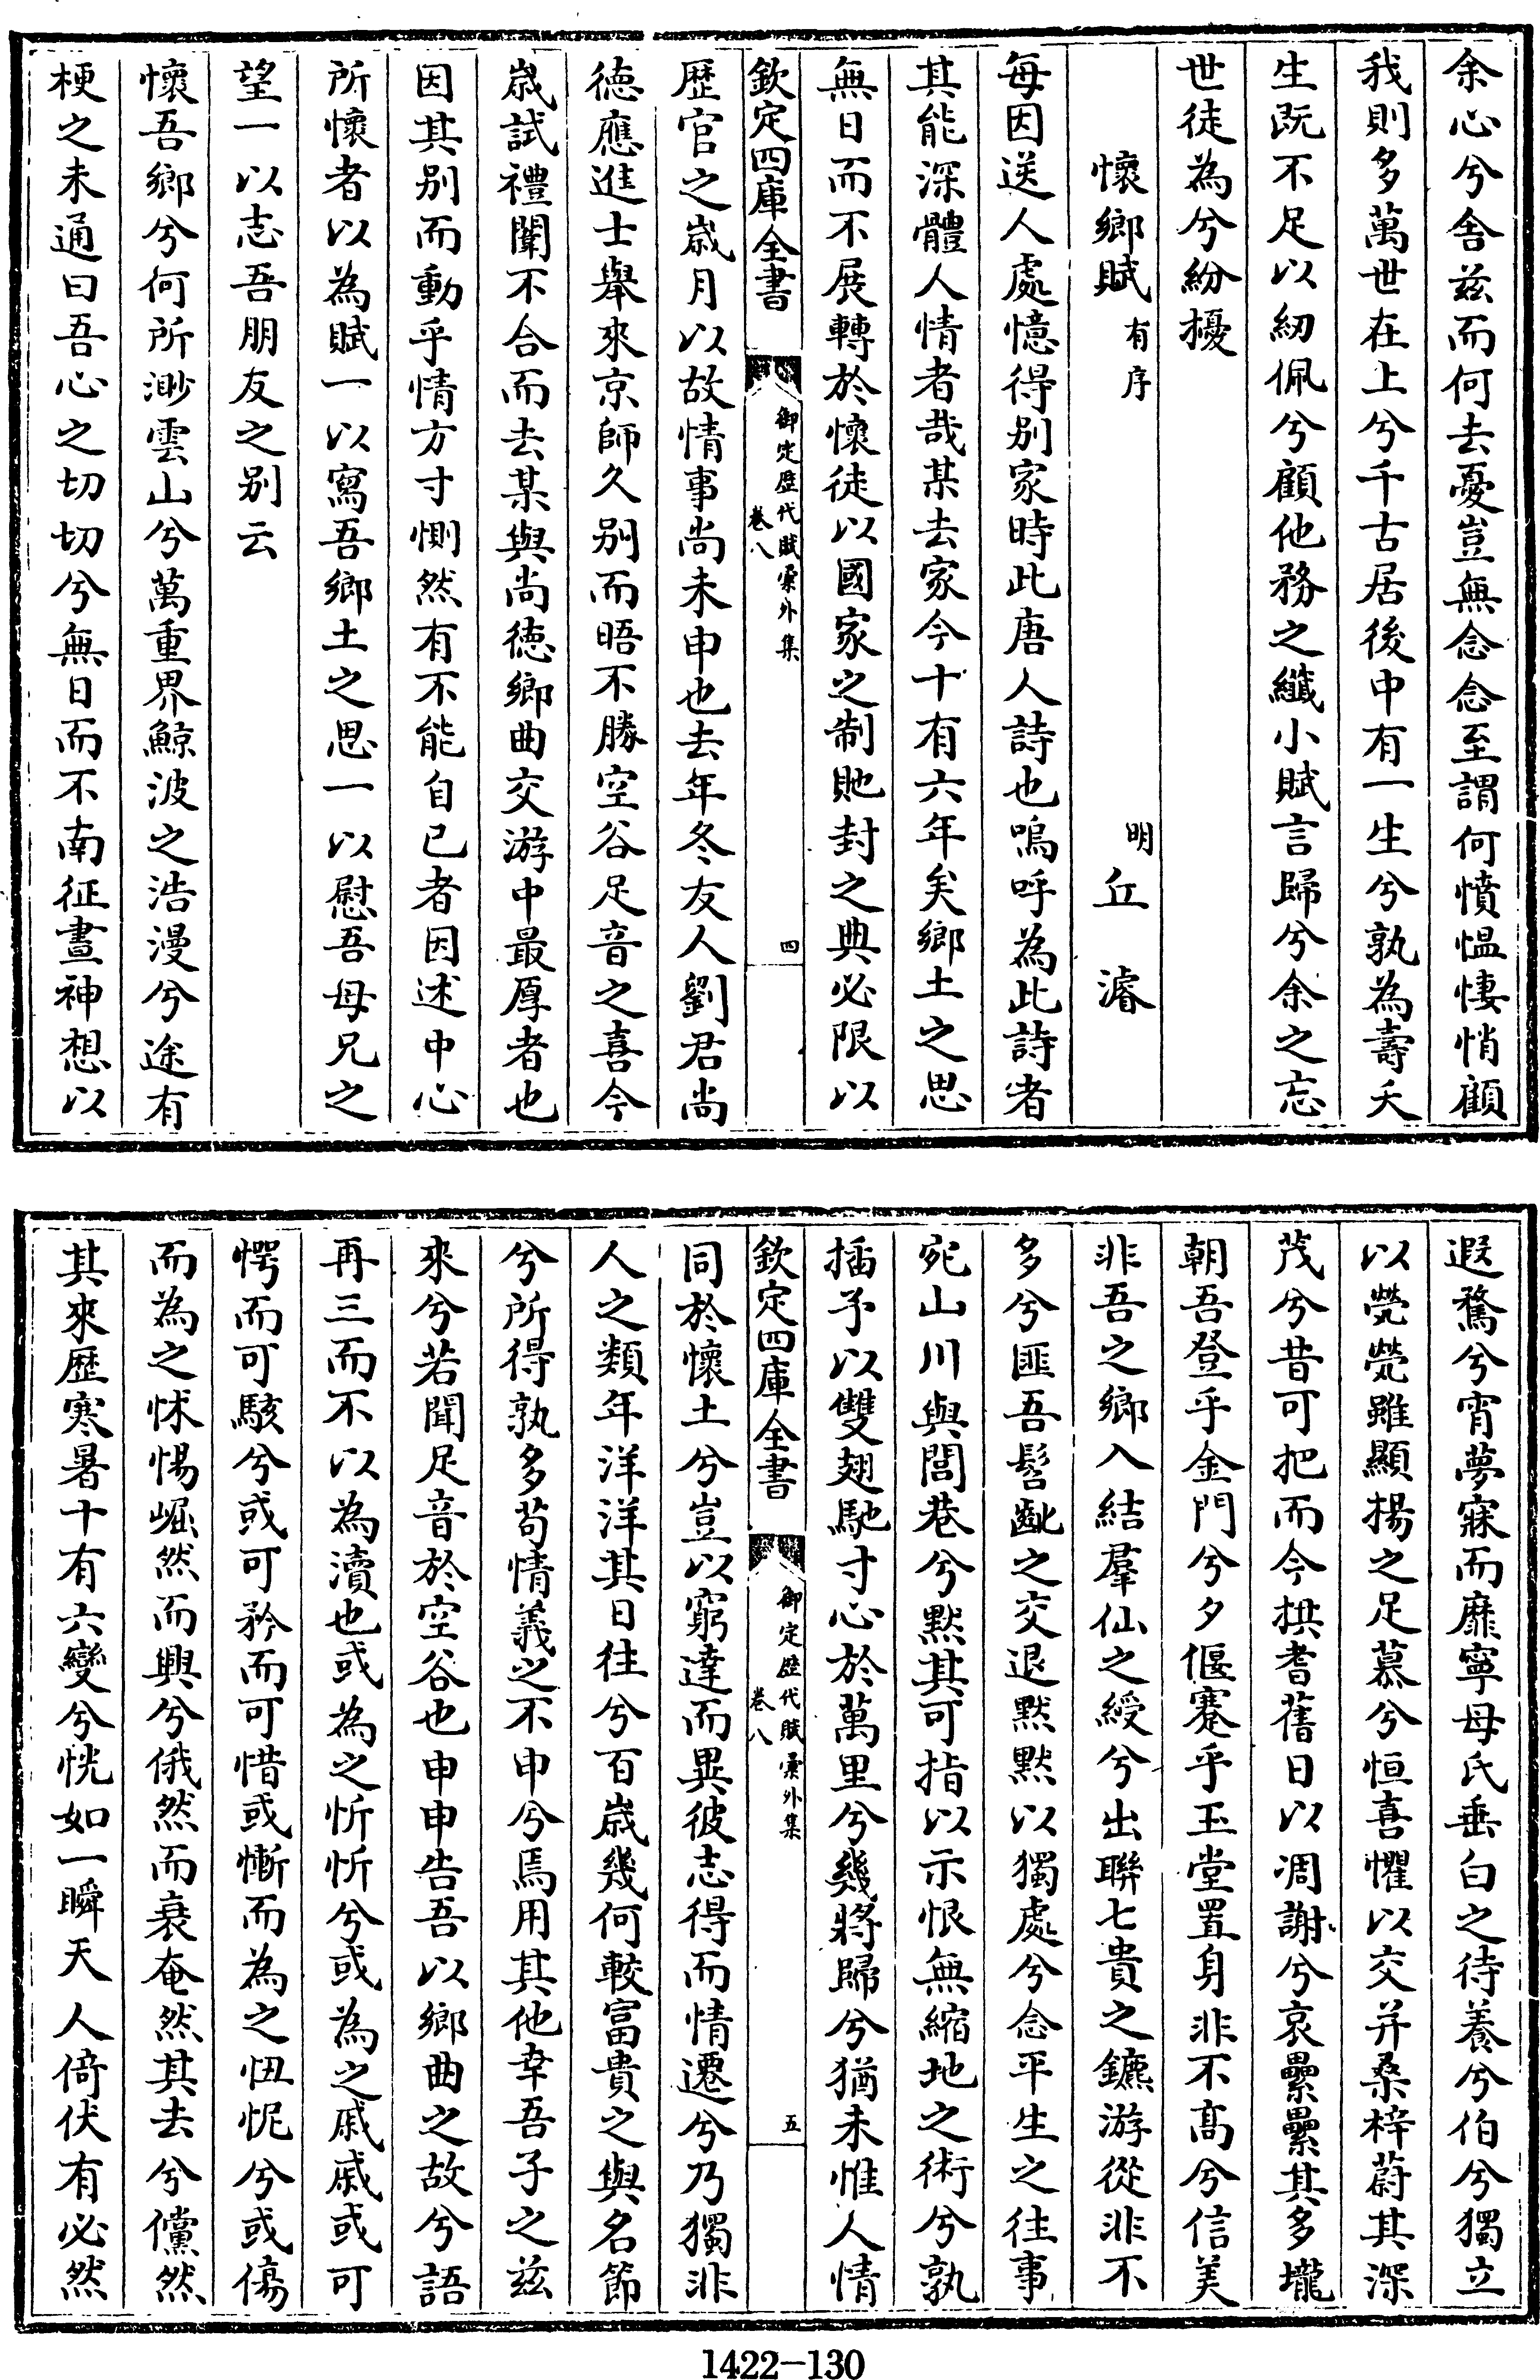 余心兮舎兹而何去憂豈無念念至謂何憤愠悽悄顧
我則多萬世在上兮千古居後中有一生兮孰為壽夭
生既不足以紉佩兮顧他務之纎小賦言歸兮余之忘
世徒為兮紛擾
懷鄉賦 有序 明 丘濬
每因送人處憶得别家時此唐人詩也嗚呼為此詩者
其能深體人情者哉某去家今十有六年矣鄉土之思
無日而不展轉於懷徒以國家之制貤封之典必限以
欽定四庫全書 御定歷代賦彙外集 卷八 四
歴官之歳月以故情事尚未申也去年冬友人劉君尚
德應進士舉來京師久别而晤不勝空谷足音之喜今
歳試禮闈不合而去某與尚徳鄉曲交游中最厚者也
因其别而動乎情方寸惻然有不能自已者因述中心
所懷者以為賦一以寫吾鄉土之思一以慰吾母兄之
望一以志吾朋友之别云
懷吾鄉兮何所渺雲山兮萬重界鯨波之浩漫兮途有
梗之未通曰吾心之切切兮無日而不南征晝神想以
遐騖兮宵夢寐而靡寧母氏垂白之待養兮伯兮獨立
以煢煢雖顯揚之足慕兮恒喜懼以交并桑梓蔚其深
茂兮昔可把而今拱耆舊日以凋謝兮哀纍纍其多壠
朝吾登乎金門兮夕偃蹇乎玉堂置身非不髙兮信美
非吾之鄉入結羣仙之綬兮出聨七貴之鑣游從非不
多兮匪吾髫齔之交退黙黙以獨處兮念平生之往事
宛山川與閭巷兮黙其可指以示恨無縮地之術兮孰
插予以雙翅馳寸心於萬里兮幾將歸兮猶未惟人情
欽定四庫全書 御定歷代賦彙外集 卷八 五
同於懷土兮豈以窮達而異彼志得而情遷兮乃獨非
人之類年洋洋其日往兮百歳幾何較富貴之與名節
兮所得孰多苟情義之不申兮焉用其他幸吾子之兹
來兮若聞足音於空谷也申申告吾以鄉曲之故兮語
再三而不以為瀆也或為之忻忻兮或為之戚戚或可
愕而可駭兮或可矜而可惜或慚而為之忸怩兮或傷
而為之怵惕崛然而興兮俄然而衰奄然其去兮儻然
其來歴寒暑十有六變兮恍如一瞬天人倚伏有必然
1422-130